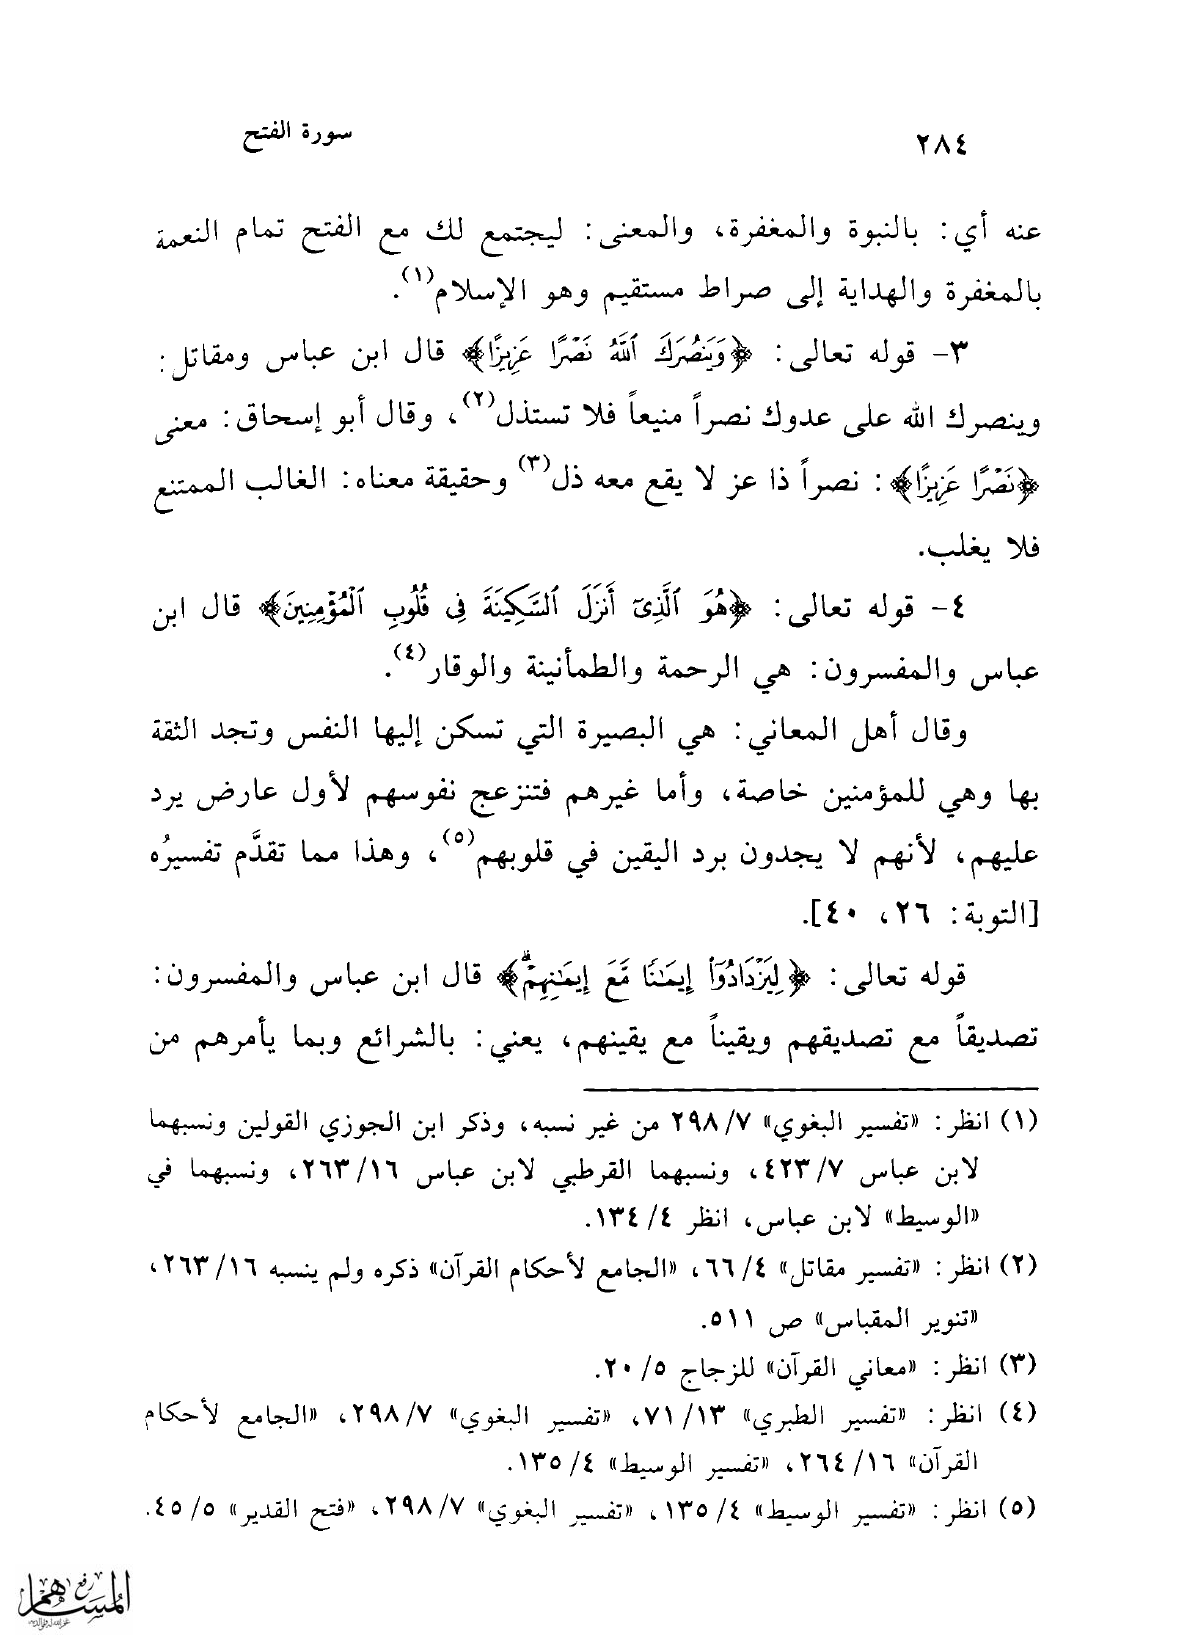 ٢٨٤ سورة الفتح
عنه أي: بالنبوة والمغفرة، والمعنى: ليجتمع لك مع الفتح تمام النعمة
بالمغفرة والهداية إلى صراط مستقيم وهو الإسلام(١).
٣- قوله تعالى: ﴿وَيَنصُرَكَ ٱللَّهُ نَصْرًا عَزِيزًا﴾ قال ابن عباس ومقاتل:
وينصرك الله على عدوك نصراً منيعاً فلا تستذل(٢)، وقال أبو إسحاق: معنى
﴿نَصْرًا عَزِيزًا﴾: نصراً ذا عز لا يقع معه ذل(٣) وحقيقة معناه: الغالب الممتنع
فلا يغلب.
٤- قوله تعالى: ﴿هُوَ ٱلَّذِىٓ أَنزَلَ ٱلسَّكِينَةَ فِى قُلُوبِ ٱلْمُؤْمِنِينَ﴾ قال ابن
عباس والمفسرون: هي الرحمة والطمأنينة والوقار(٤).
وقال أهل المعاني: هي البصيرة التي تسكن إليها النفس وتجد الثقة
بها وهي للمؤمنين خاصة، وأما غيرهم فتنزعج نفوسهم لأول عارض يرد
عليهم، لأنهم لا يجدون برد اليقين في قلوبهم(٥)، وهذا مما تقدَّم تفسيرُه
[التوبة: ٢٦، ٤٠].
قوله تعالى: ﴿لِيَزْدَادُوٓا۟ إِيمَـٰنًا مَّعَ إِيمَـٰنِهِمْ ۗ﴾ قال ابن عباس والمفسرون:
تصديقاً مع تصديقهم ويقيناً مع يقينهم، يعني: بالشرائع وبما يأمرهم من
(١) انظر: «تفسير البغوي» ٧/ ٢٩٨ من غير نسبه، وذكر ابن الجوزي القولين ونسبهما
لابن عباس ٧/ ٤٢٣، ونسبهما القرطبي لابن عباس ١٦/ ٢٦٣، ونسبهما في
«الوسيط» لابن عباس، انظر ٤/ ١٣٤.
(٢) انظر: «تفسير مقاتل» ٤/ ٦٦، «الجامع لأحكام القرآن» ذكره ولم ينسبه ١٦/ ٢٦٣،
«تنوير المقباس» ص ٥١١.
(٣) انظر: «معاني القرآن» للزجاج ٥/ ٢٠.
(٤) انظر: «تفسير الطبري» ١٣/ ٧١، «تفسير البغوي» ٧/ ٢٩٨، «الجامع لأحكام
القرآن» ١٦/ ٢٦٤، «تفسير الوسيط» ٤/ ١٣٥.
(٥) انظر: «تفسير الوسيط» ٤/ ١٣٥، «تفسير البغوي» ٧/ ٢٩٨، «فتح القدير» ٥/ ٤٥.